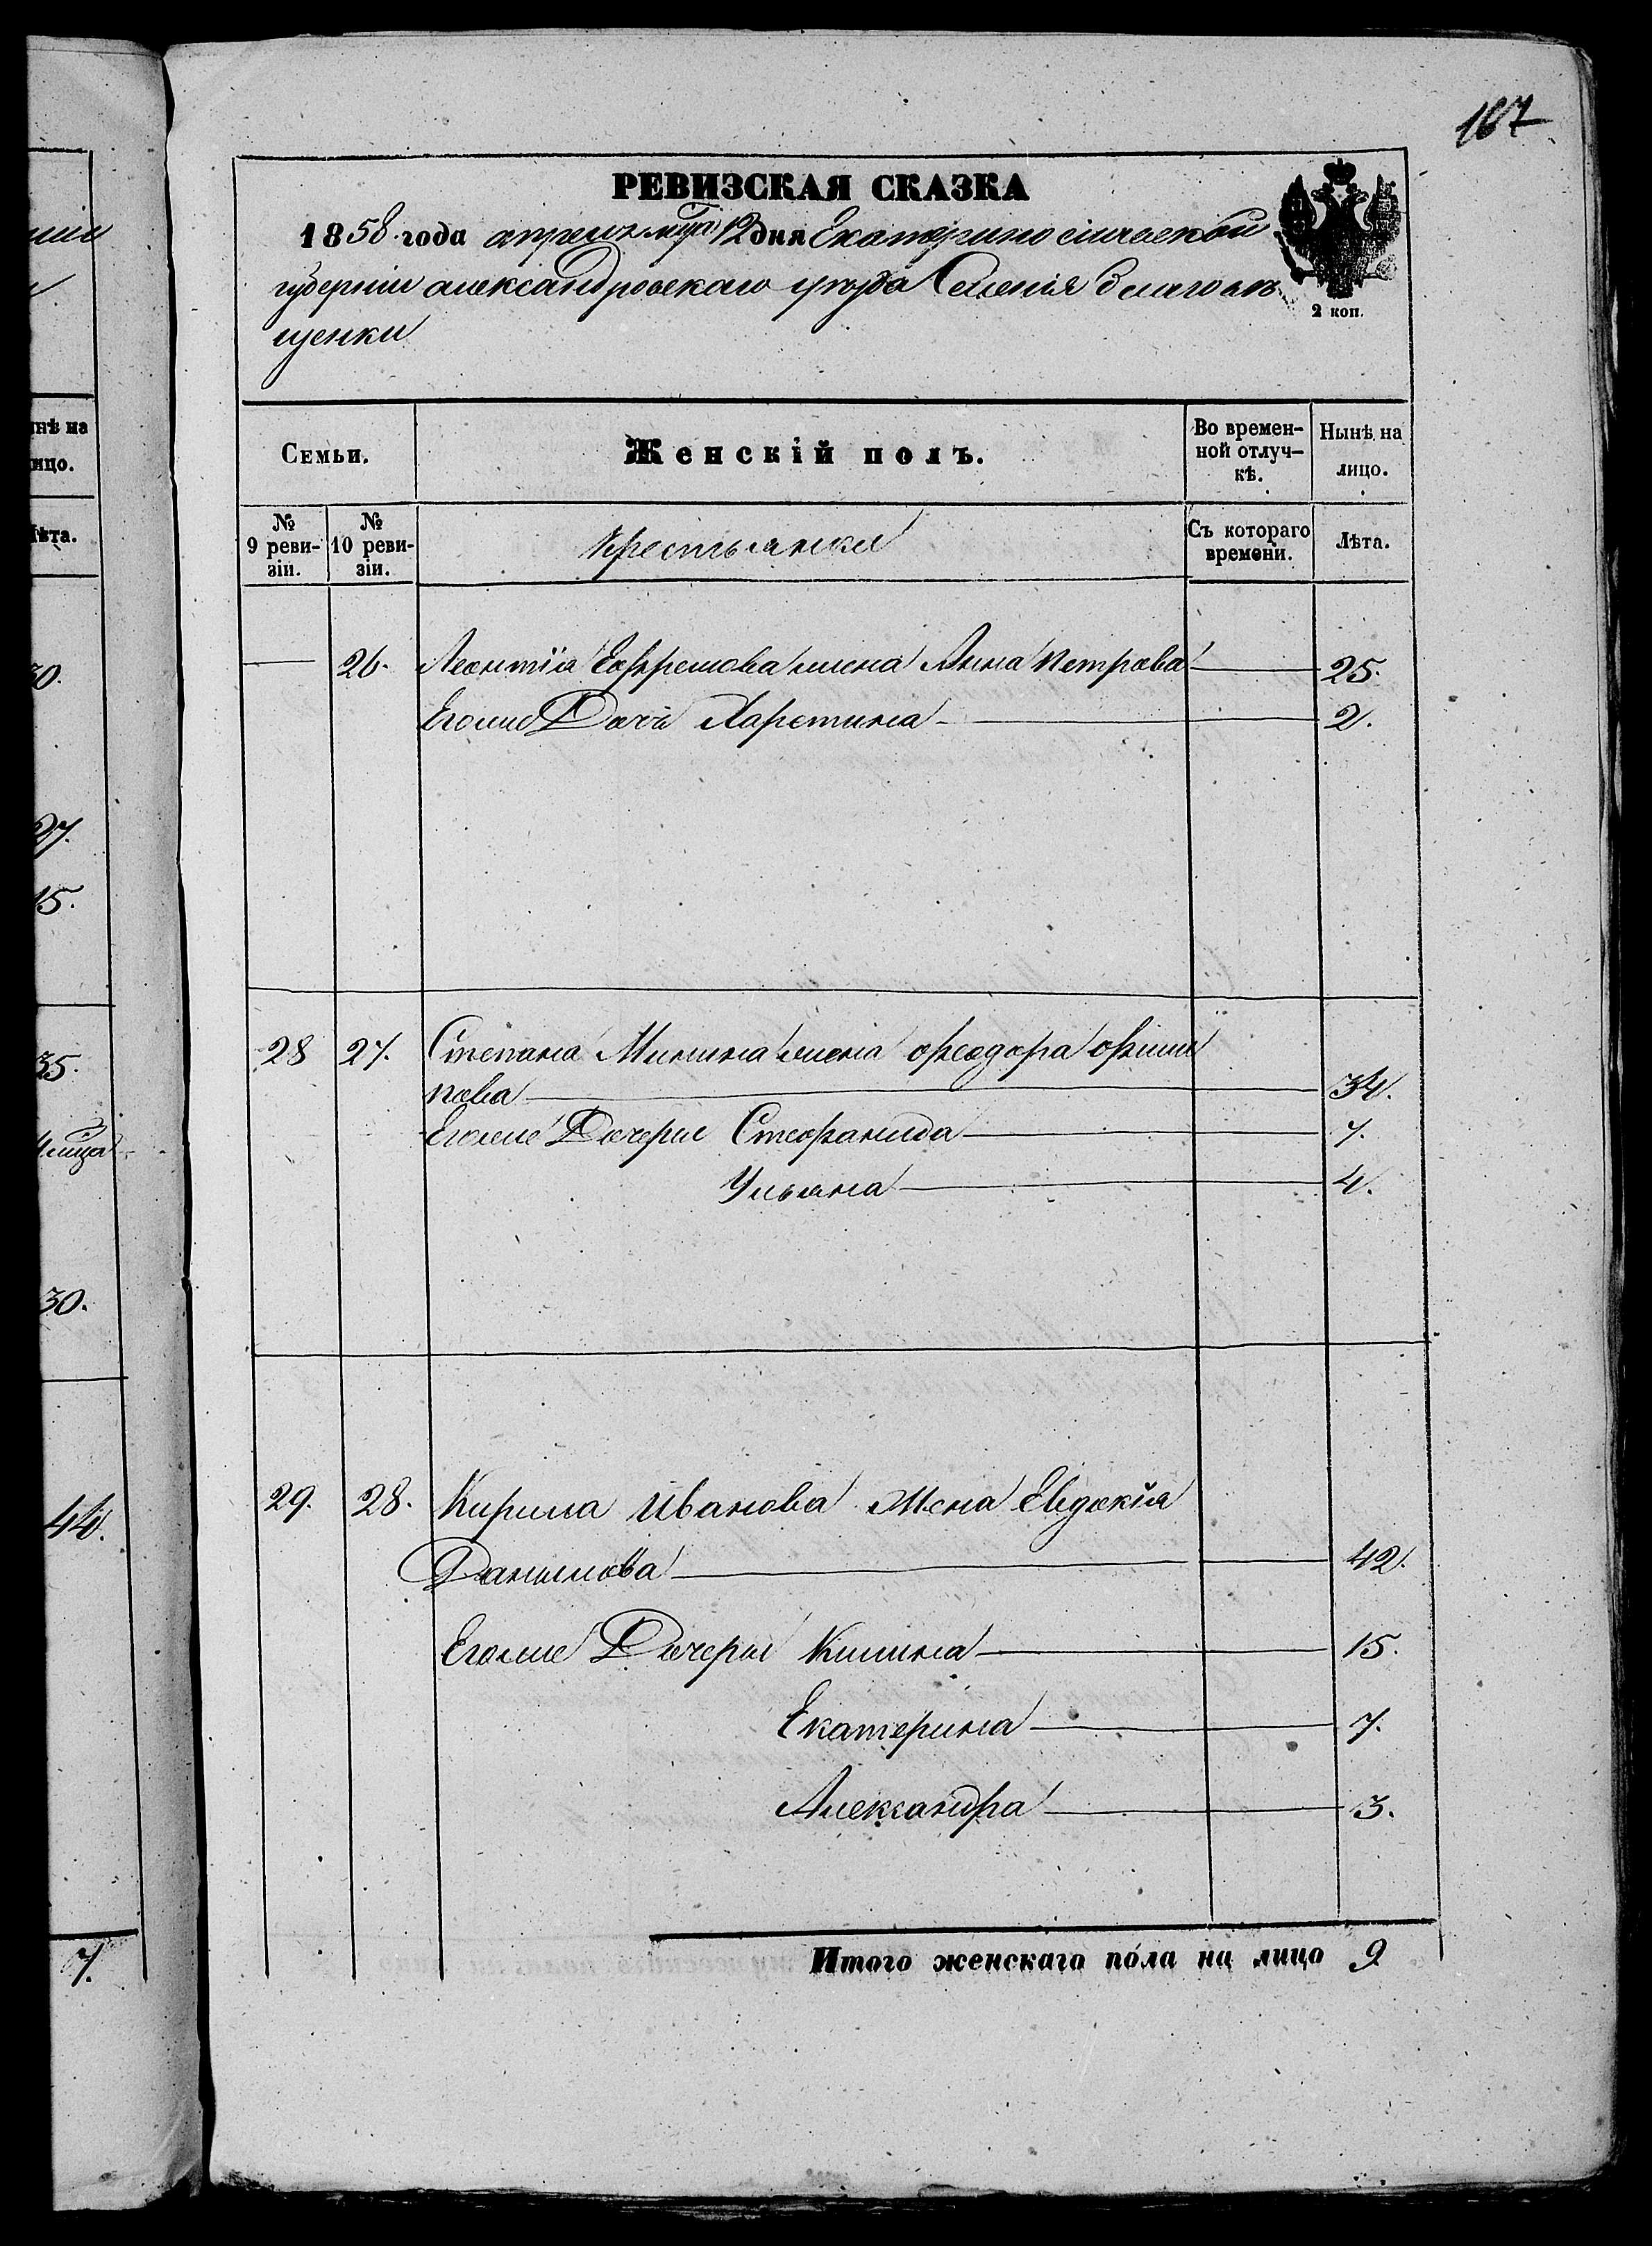 107
РЕВИЗСКАЯ СКАЗКА
1858 года апреля мца 12 дня Екатеринославской
губерніи александровскаго уезда Селенія благовѣ
щенки
2 коп.
Семьи.
Женскій полъ.
Во времен-
ной отлуч-
кѣ.
Нынѣ на
лицо.
№
9 реви-
зіи.
№
10 реви-
зіи.
крестьянки
Съ котораго
времени.
Лѣта.
26. Леонтія Ефремова жена Анна Петрова 25.
Его же Дочь Харетина 2.
28 27. Степана Минина жена феодора фили
пова 34.
Его же Дочери Стефанида 7.
Ульяна 4.
29. 28. Кирила Иванова Жена Евдокія
Данилова 42.
Его же Дочери Килина 15.
Екатерина 7.
Александра 3.
Итого женскаго пола на лицо 9
нѣ на
ицо.
ѣта.
30.
27.
15.
35.
30.
44.
7.